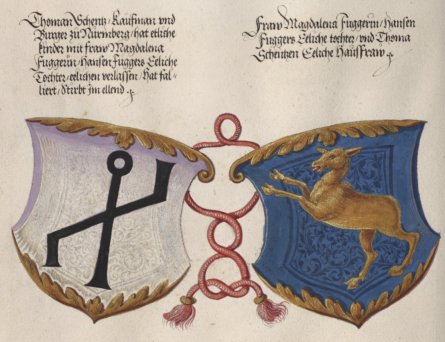 Thoman Schentz, Kaufman vnd
Burger zu Nürmberg, hat etliche
kinder mit fraw Magdalena
Fuggerin, Hansen Fuggers Eeliche
Tochter, eelichen verlassen, Hat fal-
liert, Stirbt jm ellend.
Fraw Magdalena Fuggerin, Hansen
Fuggers Eeliche tochter, vnd Thoma
Schentzen Eeliche Haussfraw.